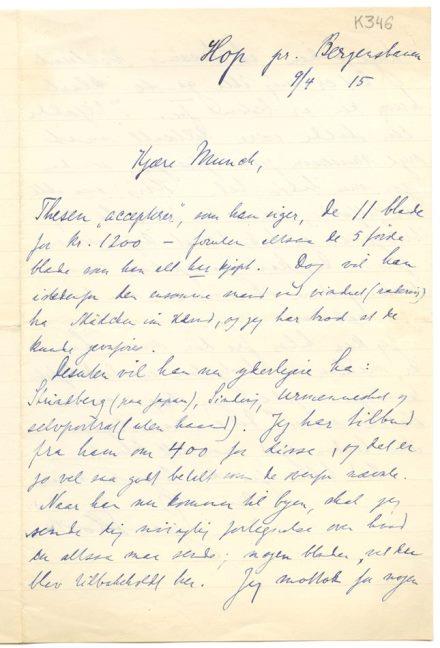 K346
Hop pr. Bergensbanen
9/4 15
Kjære Munch,
Thesen "accepterer", som han siger, de 11 blade
for kr. 1200 – foruden altsaa de 5 første
blade som han alt har kjøpt. Dog vil han
istedenfor den ensomme mand ved vinduet (radering)
ha Mädchen im Hemd, og jeg har trod at de
kunde
Desuten vil han nu yderligere ha:
Strindberg (paa japan), Sinding, Urmennesket og
selvportræt (uten haand). Jeg har tilbud
fra ham om 400 for disse, og det er
jo vel saa godt betalt som de ovenfor nævnte.
Naar han nu kommer til byen, skal jeg
sende dig nøiagtig fortegnelse over hvad
du altsaa maa sende; nogen blade
blev tilbakeholdt her. Jeg mottok for nogen